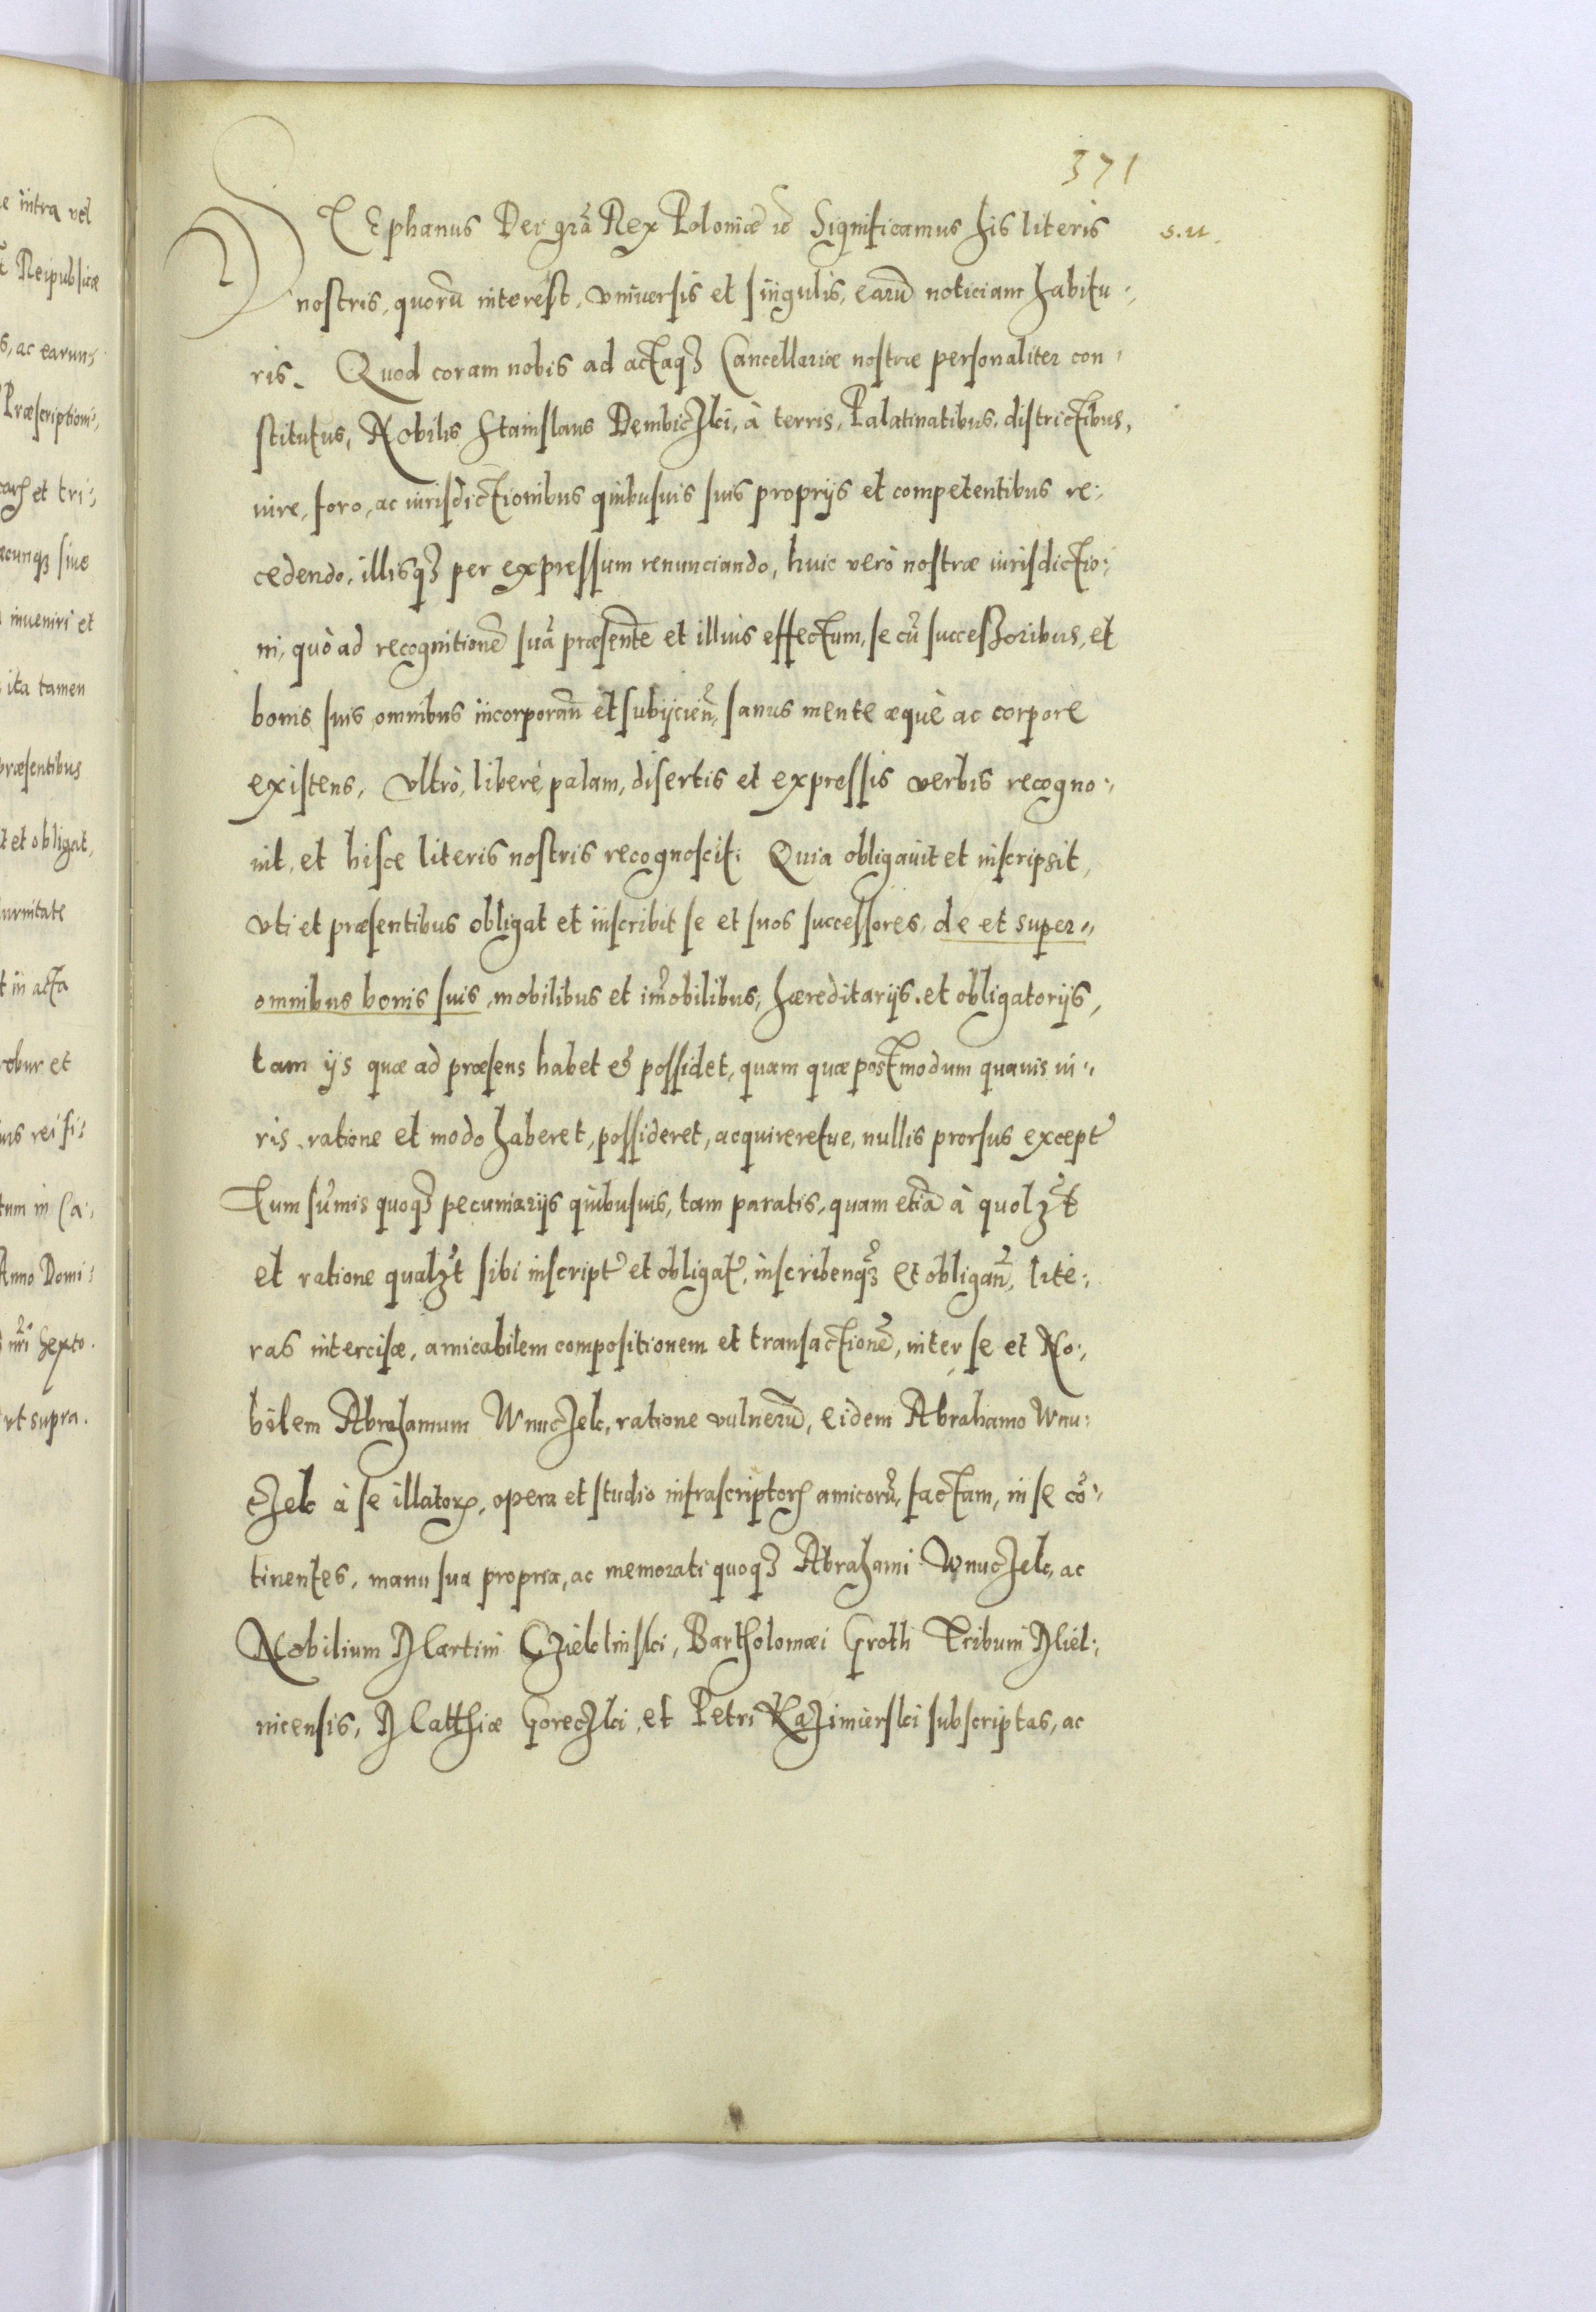 371
STEphanus Dei gr̃a Rex Poloniæ ꝛc Significamus his literis
s. u.
nostris, quorũ interest, vniuersis et singulis, earũ noticiam habitu:,
ris. Quod coram nobis ad actaqꝫ Cancellariæ nostræ personaliter con,
stitutus, Nobilis Stanislaus Dembiczki, à terris, Palatinatibus, districtibus,
iure, foro, ac iurisdictionibus quibusuis suis proprijs et competentibus re:,
cedendo, illisqꝫ per expressum renunciando, huic verò nostræ iurisdictio:,
ni, quò ad recognitionẽ suã præsentẽ et illius effectum, se cũ successoribus, et
bonis suis omnibus incorporañ et subijcieñ, sanus mente æquè ac corpore
existens, vltrò, liberè, palam, disertis et expressis verbis recogno:,
uit, et hisce literis nostris recognoscit: Quia obligauit et inscripsit,
vti et præsentibus obligat et inscribit se et suos successores, de et super,,
omnibus bonis suis, mobilibus et im̃obilibus, hæreditarijs, et obligatorijs,
tam ijs quæ ad præsens habet et possidet, quam quæ postmodum quauis iu:,
ris ratione et modo haberet, possideret, acquireretue, nullis prorsus except̃
Tum sum̃is quoqꝫ pecuniarijs quibusuis, tam paratis, quam etiã à quolꝫt
et ratione qualꝫt sibi inscript̃ et obligat̃, inscribenqꝫ et obligañ, lite:,
ras intercisæ, amicabilem compositionem et transactionẽ, inter se et No:,
bilem Abrahamum Wnuczek, ratione vulnerũ, eidem Abrahamo Wnu:
czek à se illatorꝝ, opera et studio infrascriptorꝝ amicorũ, factam, in se cõ:,
tinentes, manu sua propria, ac memorati quoqꝫ Abrahami Wnuczek, ac
Nobilium Martini Czieklinski, Bartholomæi Groth Tribuni Miel:,
nicensis, Matthiæ Goreczki, et Petri Kazimierski subscriptas, ac